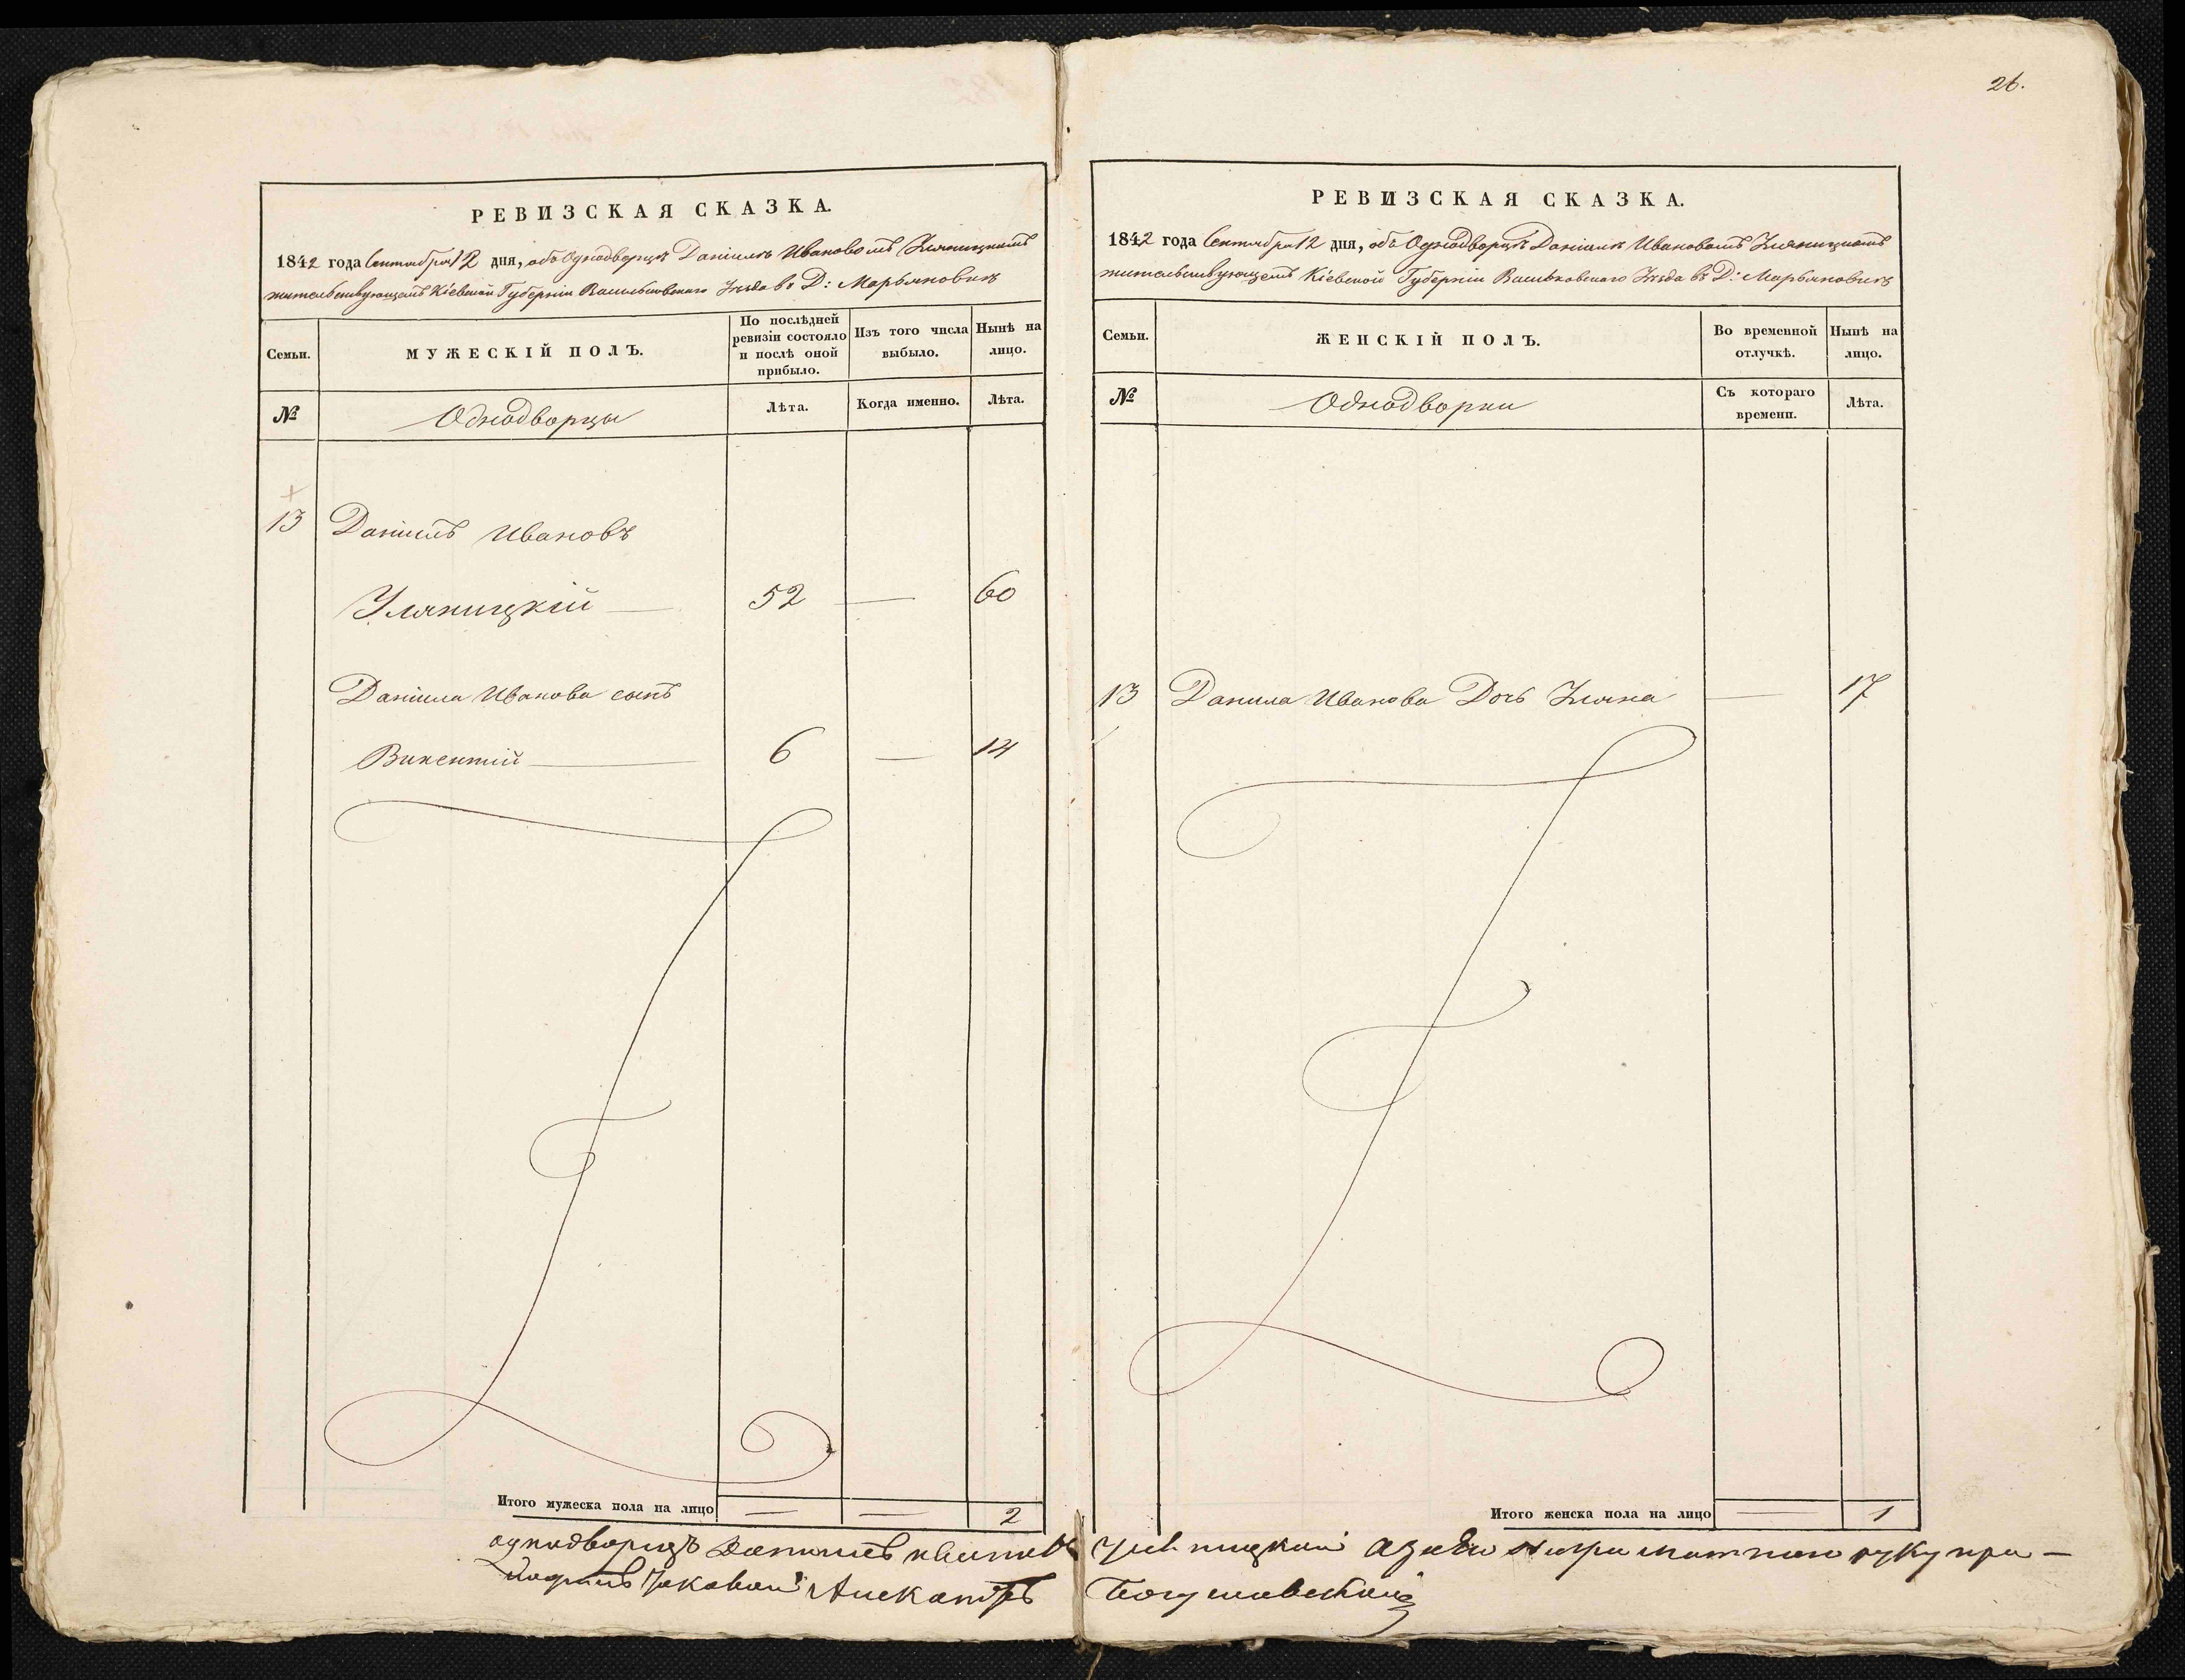 26.
РЕВИЗСКАЯ СКАЗКА.
1842 года Сентября 12 дня, объ Однодворцѣ Даніилѣ Ивановомъ Уляницкомъ
жительствующемъ Кіевской Губерніи Васильковскаго Уѣзда въ Д: Марьяновкѣ
Семьи.
МУЖЕСКІЙ ПОЛЪ.
По послѣдней ревизіи состояло и послѣ оной прибыло.
Изъ того числа выбыло.
Нынѣ на лицо.
№
Однодворцы
Лѣта.
Когда именно.
Лѣта.
13 Даніилъ Ивановъ
Уляницкій — 52 — 60
Даніила Иванова сынъ
Викентій — 6 — 14
Итого мужеска пола на лицо — — 2
РЕВИЗСКАЯ СКАЗКА.
1842 года Сентября 12 дня, объ Однодворцѣ Даніилѣ Ивановомъ Уляницкомъ
жительствующемъ Кіевской Губерніи Васильковскаго Уѣзда въ Д: Марьяновкѣ
Семьи.
ЖЕНСКІЙ ПОЛЪ.
Во временной отлучкѣ.
Нынѣ на лицо.
№
Однодворки
Съ котораго времени.
Лѣта.
13 Данила Иванова Дочь Уляна — 17
Итого женска пола на лицо — 1
однодворцъ Данилъ Ивановъ Уляницкий а за его неграмотного руку при—
Александръ Богушавский